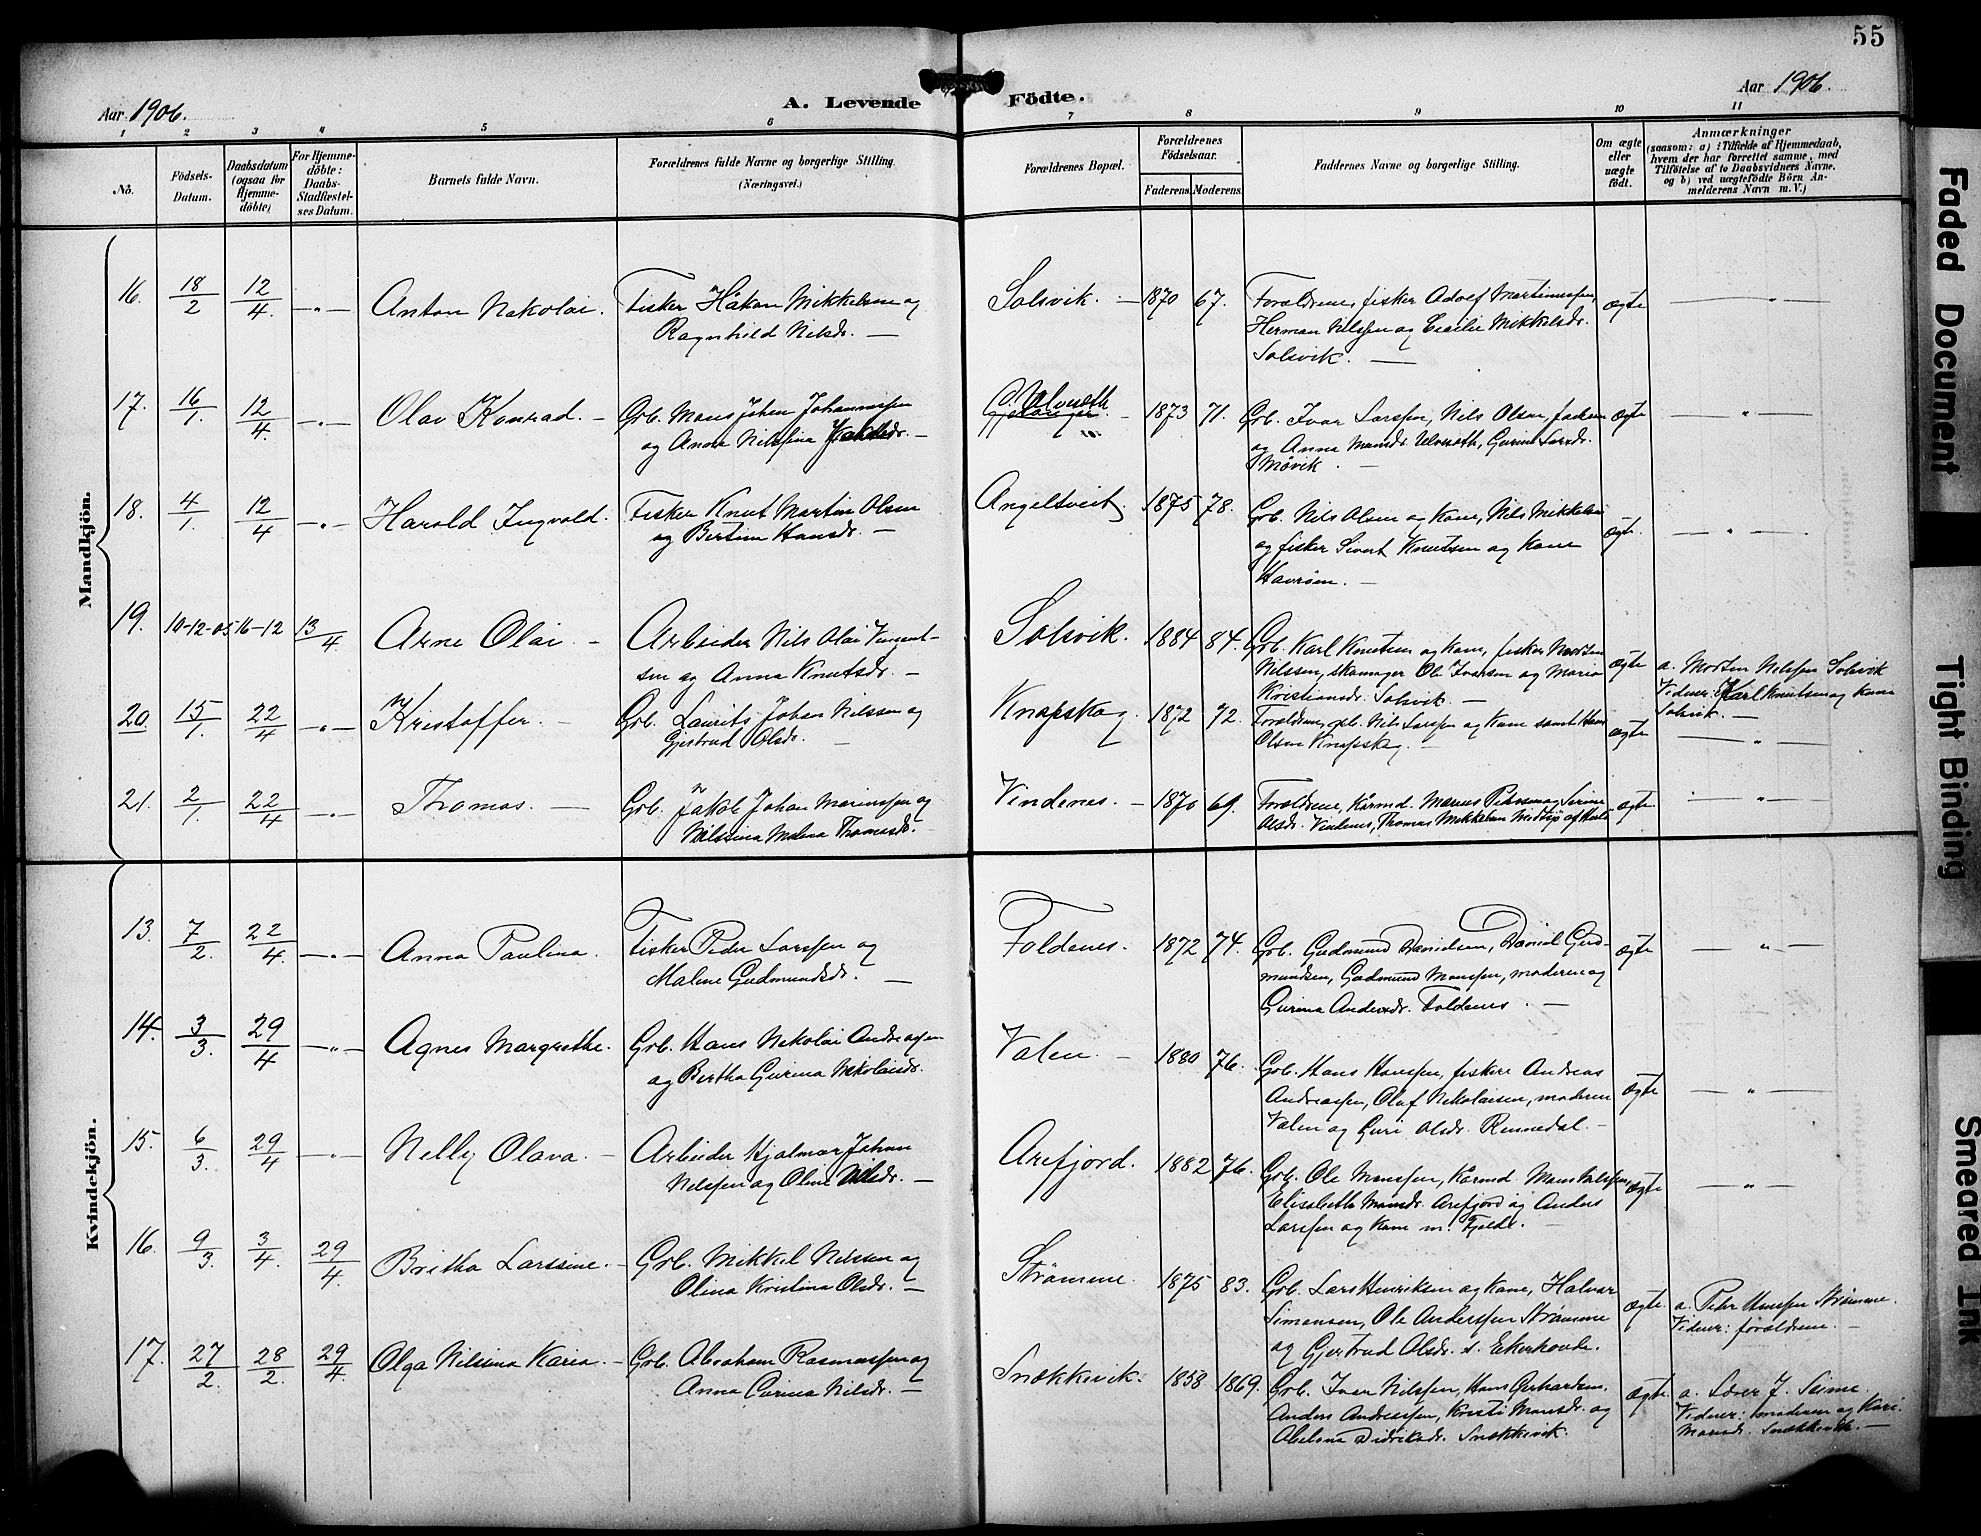 55
Aar 1906.
A. Levende Födte.
Aar 1906.
1 2 3 4 5 6 7 8 9 10 11
No.
Födsels-
Datum.
Daabsdatum
(ogsaa for
Hjemme-
döbte)
For Hjemme-
döbte:
Daabs-
Stadfæstel-
ses Datum.
Barnets fulde Navn.
Forældrenes fulde Navne og borgerlige Stilling.
(Næringsvei.)
Forældrenes Bopæl.
Forældrenes
Födselsaar.
Faderens. Moderens.
Faddernes Navne og borgerlige Stilling.
Om ægte
eller
uægte
födt.
Anmærkninger
(saasom: a) i Tilfælde af Hjemmedaab,
hvem der har forrettet samme, med
Tilföielse af to Daabsvidners Navne,
og b) ved uægtefödte Börn An-
melderens Navn m. V.)
Mandkjön.
16. 18/2 12/4 -"- Anton Nikolai. Fisker Håkon Mikkelsen og
Ragnhild Nilsdr. —
Solsvik. — 1870 67. Forældrene, fisker Adolf Martinussen,
Herman Nilssen og Cecilie Mikkelsdr.
Solsvik. —
ægte — " —
17. 16/1. 12/4. -"- Olav Konrad. — Grb. Mons Johan Johannessen
og Anna Nilssina —
Ulveseth. 1873 71. Grb. Ivar Larssen, Nils Olsen,
og Anna Monsdr. Ulveseth, Gurine Larsdr.
Måvik. —
ægte — " —
18. 4/1. 12/4 -"- Harald Ingvald. Fisker Knut Martin Olsen
og Bertine Hansdr. —
Angeltveit. 1875 78. Grb. Nils Olsen og kone, Nils Mikkelsen
og fisker Sivert Knutsen og kone
Havröen. —
ægte. — " —
19. 10-12-05 16-12 13/4. Arne Olai — Arbeider Nils Olai Vincent-
sen og Anna Knutsdr. —
Solsvik. 1884 84. Grb. Karl Knutsen og kone, fisker Morten
Nilssen, skomager Ole Ivarsen og Maria
Kristiansdr. Solsvik. —
ægte a. Morten Nilssen Solsvik
Vidner: Karl Knutsen og kone
Solsvik. —
20. 15/1. 22/4 -"- Kristoffer. — Grb. Laurits Johan Nilssen og
Gjertrud Olsdr. —
Knapskog. 1872 72. Forældrene, grb. Nils Larssen og kone samt Hans
Olsen Knapskog. —
ægte — " —
21. 2/1. 22/4 -"- Thomas. — Grb. Jakob Johan Marinussen og
Nilssina Malena Thomasdr. —
Vindenes. — 1870 69. Forældrene, kårmd. Marius Petersen og Serine
Olsdr. Vindenes, Thomas Mikkelsen
ægte — " —
Kvindekjön.
13. 7/2. 22/4. -"- Anna Paulina. Fisker Peder Larssen og
Malene Gudmundsdr. —
Foldenes. 1872 74. Grb. Gudmund Danielsen, Daniel Gud-
mundsen, Gudmund Monssen, moderen og
Gurina Andersdr. Foldenes. —
ægte — " —
14. 3/3. 29/4 -"- Agnes Margrethe. Grb. Hans Nikolai Andreassen
og Bertha Gurina Nikolaisdr.
Valen. — 1880 76. Grb. Hans Hanssen, fiskere Andreas
Andreassen, Oluf Nikolaisen, moderen
Valen og Guri Olsdr. Rennedal. —
ægte — " —
15. 6/3. 29/4 -"- Nelly Olava. — Arbeider Hjalmar Johan
Nilssen og Oline Nilsdr. —
Arefjord. 1882 76. Grb. Ole Monssen, kårmd. Mons Nilssen,
Elisabeth Monsdr. Arefjord og Anders
Larssen og kone m. Fjeld. —
ægte — " —
16. 9/3. 3/4. 29/4. Britha Larssine. — Grb. Mikkel Nilssen og
Olina Kristina Olsdr. —
Strömme. 1875 83. Grb. Lars Henriksen og kone, Halvar
Simonsen, Ole Anderssen Strömme
og Gjertrud Olsdr. s. Ekerhovde.
ægte. a. Peder Hanssen Strömme.
Vidner: forældrene. —
17. 27/2. 28/2. 29/4. Olga Nilssina Karia. — Grb. Abraham Rasmussen og
Anna Gurina Nilsdr. —
Snekkevik. 1858 1869. Grb. Ivar Nilssen, Hans Gerhardsen,
Anders Andreassen, Kristi Monsdr. og
Abelone Didriksdr. Snekkevik.
ægte a. Lærer J. Seime
Vidner: moderen og Kari
Monsdr. Snekkevik. —
Faded Document
Tight Binding
Smeared Ink